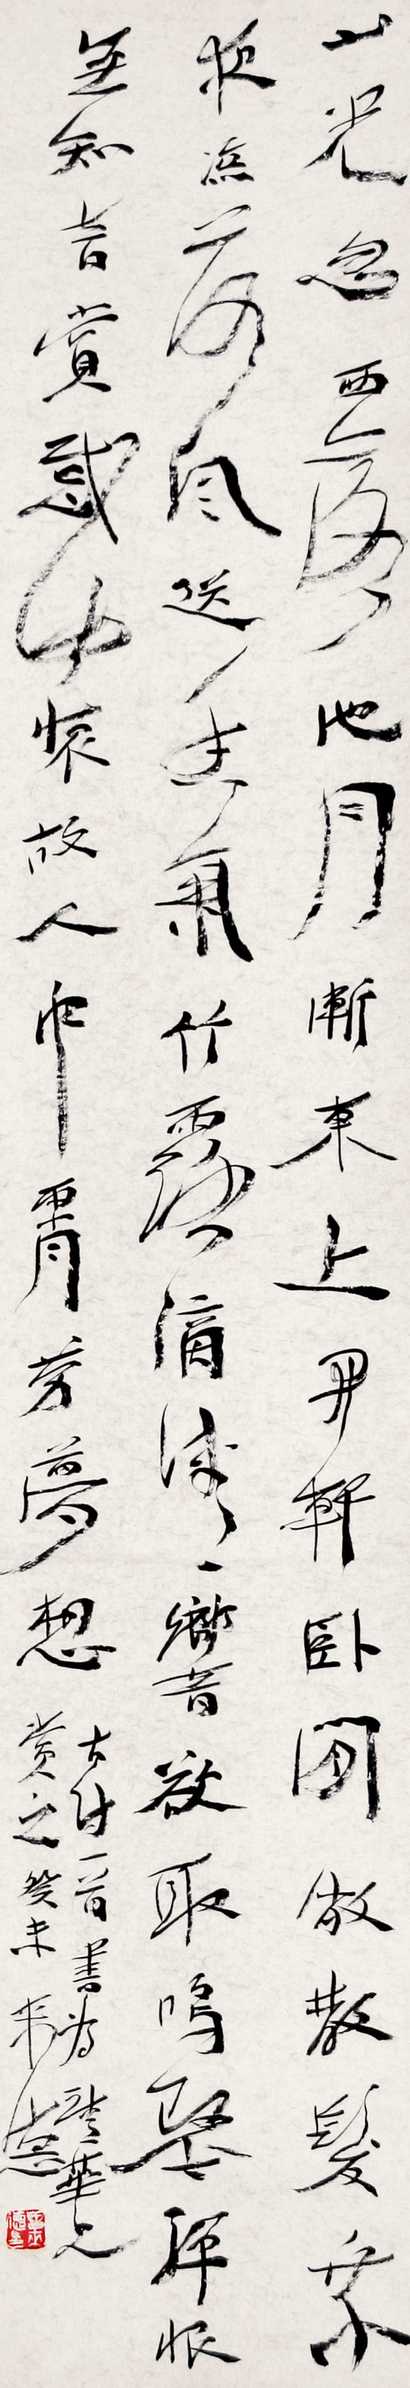 山光忽西落池月漸東上開軒臥閑敞散髮乘
夜涼荷風送香氣竹露滴清響欲取鳴琴彈恨
無知音賞感此懷故人中宵勞夢想
古詩一首書為華兄
賞之癸未